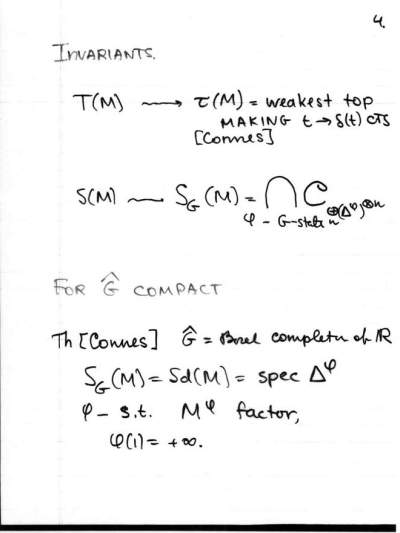 4.
INVARIANTS.
T(M) ⟿ τ(M) = weakest top
MAKING t → δ(t) CTS
[Connes]
S(M) ⟿ S_G(M) = ⋂ C_{⊕(Δ^φ)^{⊗n}}
φ – G-state
FOR Ĝ COMPACT
Th [Connes] Ĝ = of ℝ
S_G(M) = Sd(M) = spec Δ^φ
φ – s.t. M^φ factor,
φ(1) = +∞.